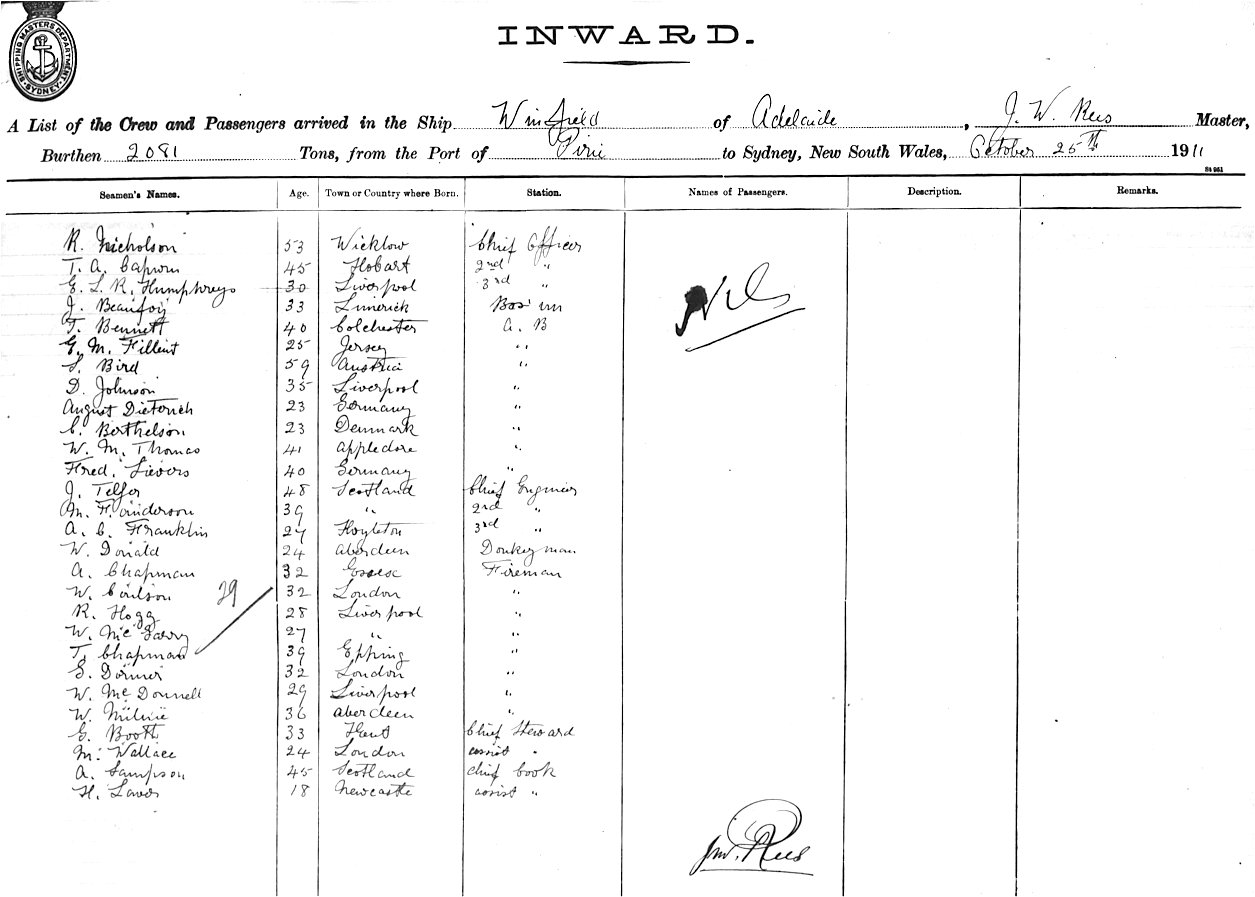 SHIPPING MASTERS DEPARTMENT SYDNEY
INWARD.
A List of the Crew and Passengers arrived in the Ship Winfield of Adelaide, J. W. Rees Master,
Burthen 2081 Tons, from the Port of Pirie to Sydney, New South Wales, October 25th 1911
Seamen's Names. Age. Town or Country where Born. Station. Names of Passengers. Description. Remarks.
R. Nicholson 53 Wicklow Chief Officer
T. A. 45 Hobart 2nd "
E. L. R. Humphreys 30 Liverpool 3rd "
J. Beaufoy 33 Limerick Bos'un
T. Bennett 40 Colchester A. B
E. M. Filleut 25 Jersey "
S. Bird 59 Austria "
D. Johnson 35 Liverpool "
August Dieterich 23 Germany "
C. Berthelson 23 Denmark "
W. M. Thomas 41 Appledore "
Fred. Sievers 40 Germany "
J. Telfer 48 Scotland Chief Engineer
M. F. Anderson 39 " 2nd "
A. C. Franklin 27 Hoyleton 3rd "
W. Donald 24 Aberdeen Donkeyman
A. Chapman 32 Essex Fireman
W. 29 32 London "
R. Hogg 28 Liverpool "
W. McGarry 27 " "
T. Chapman 39 Epping "
S. Dormer 32 London "
W. McDonnell 29 Liverpool "
W. Milnie 36 Aberdeen "
G. Booth 33 Kent Chief Steward
M. Wallace 24 London assist "
A. Sampson 45 Scotland chief Cook
H. Laver 18 Newcastle assist "
Nil
JW. Rees